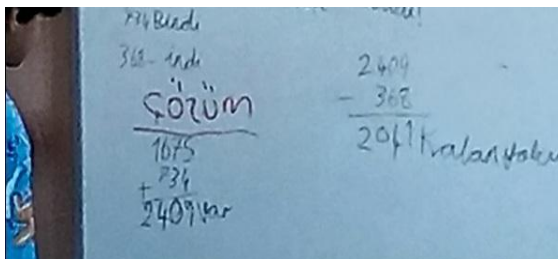 734 Bindi
368 - indi
ÇÖZÜM
1675
+ 734
2409 var
2409
- 368
2041 Kalan yolcu